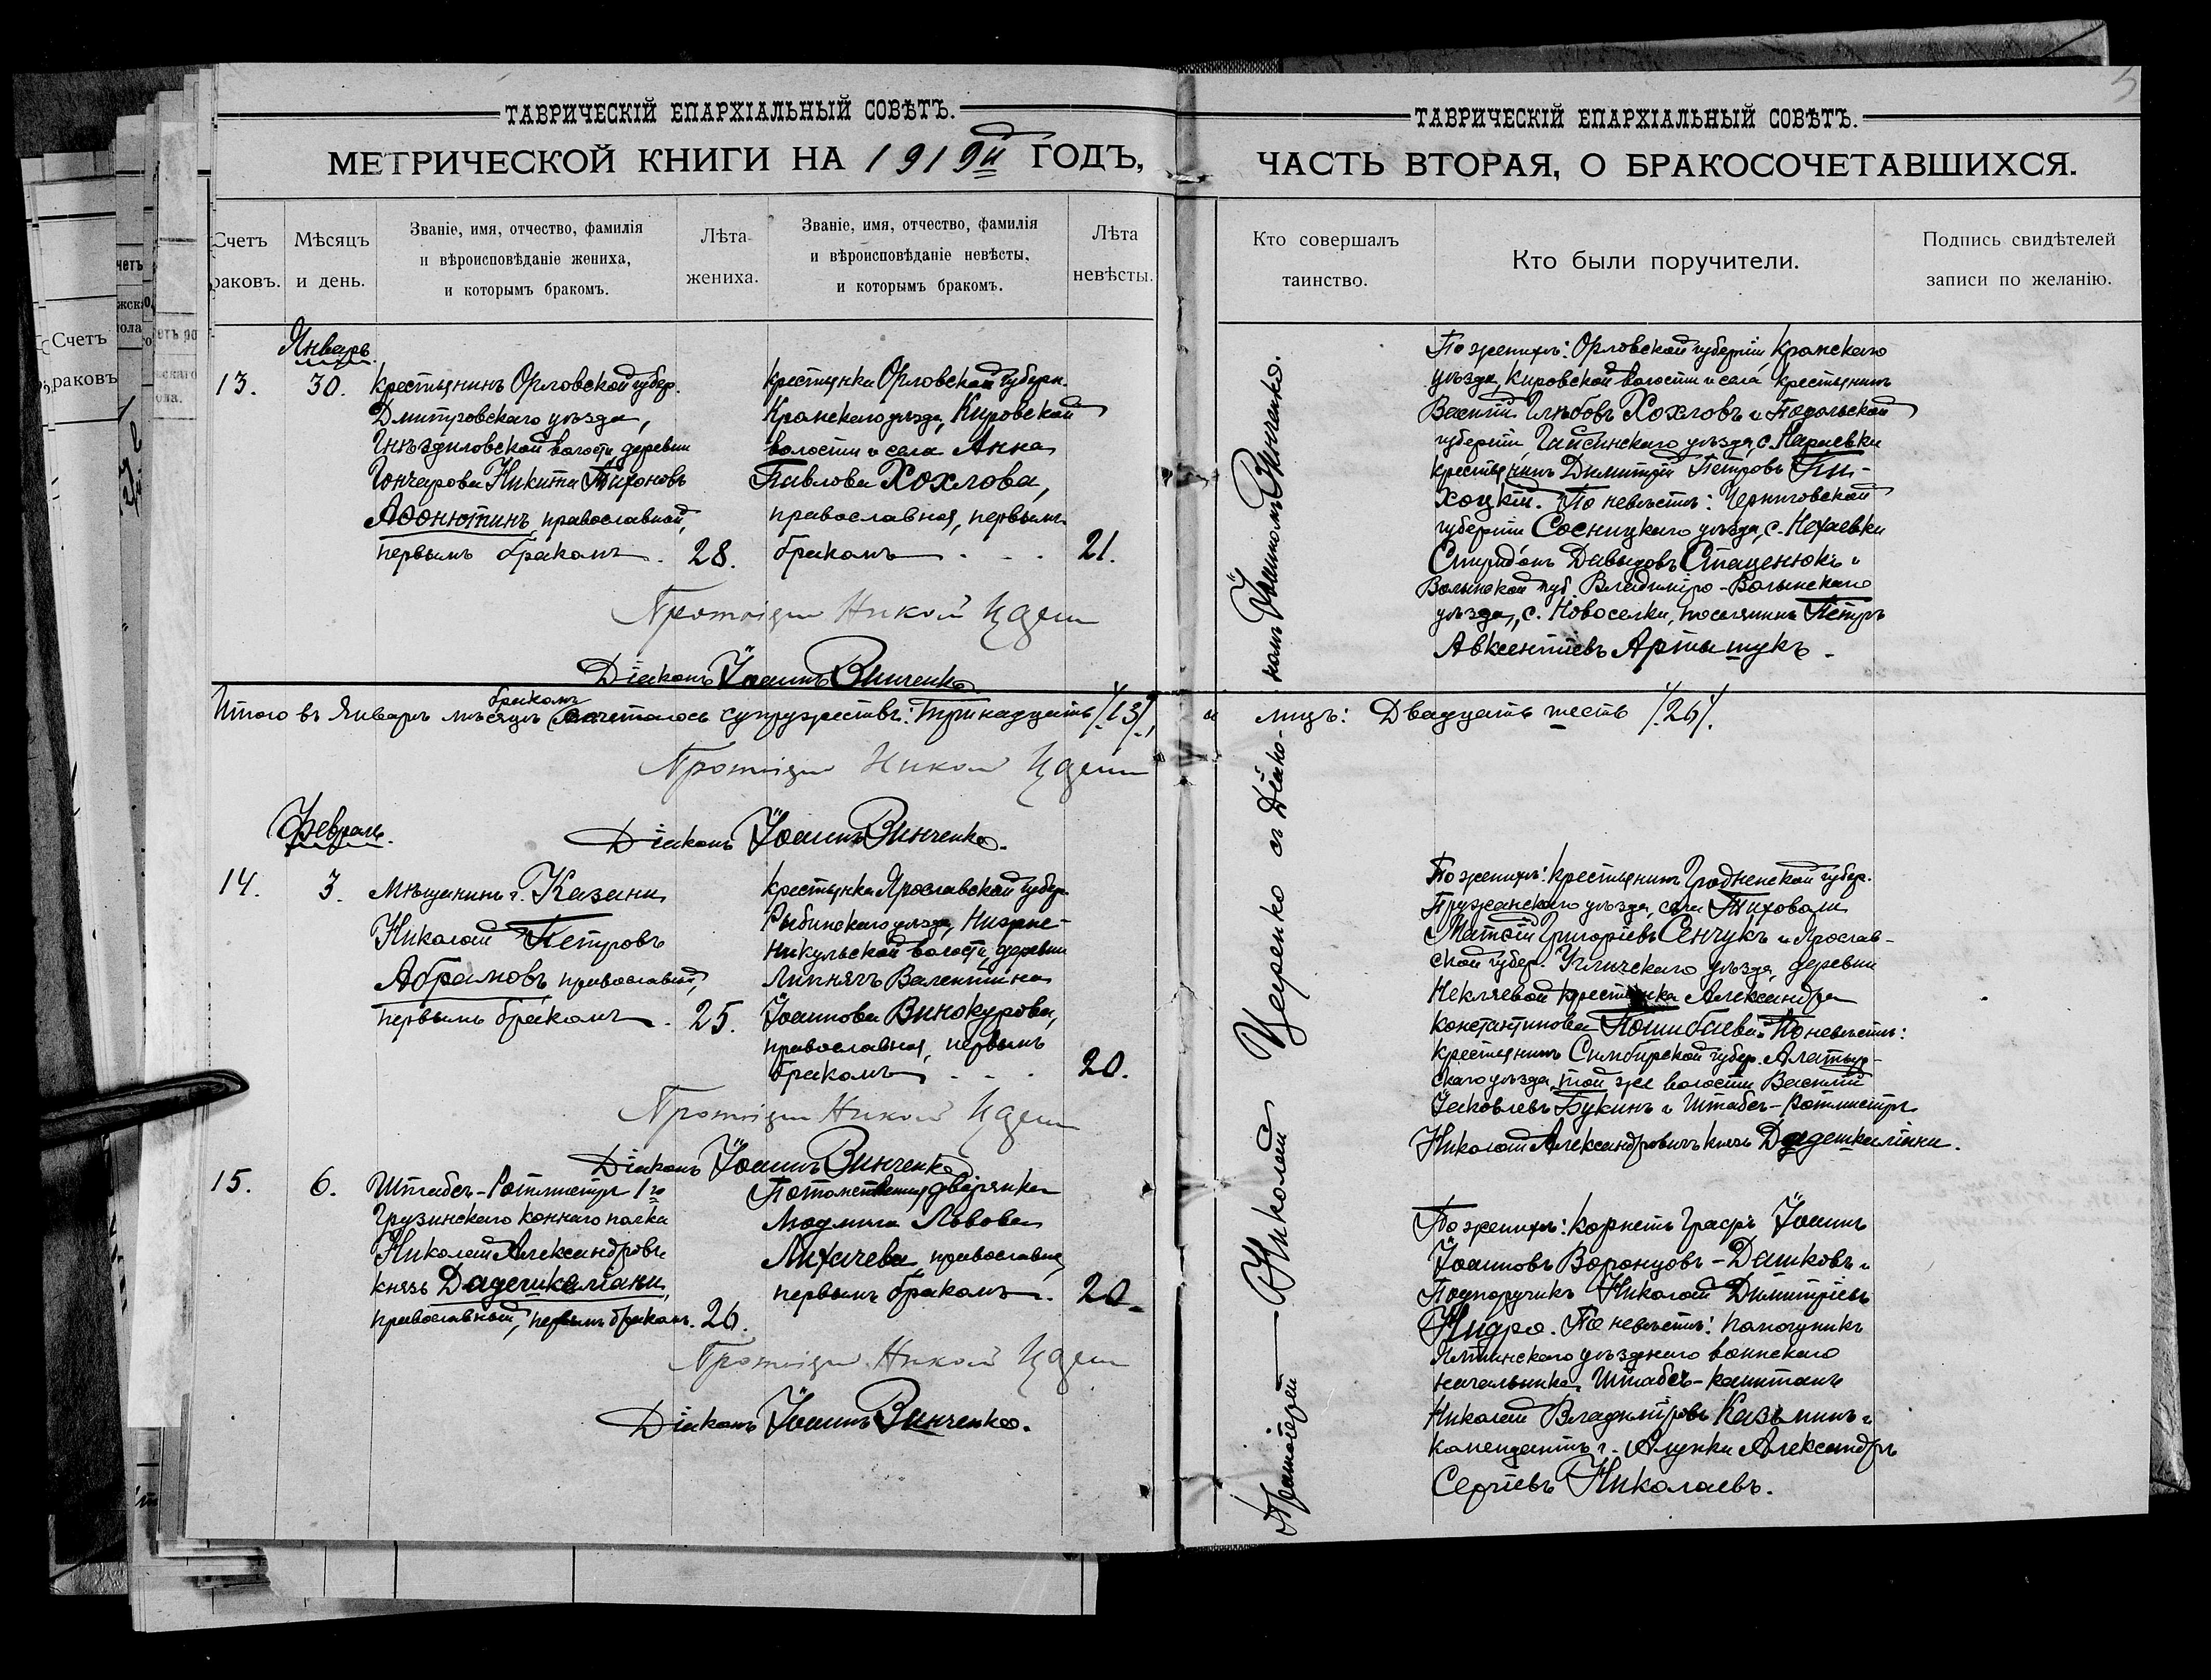 ТАВРИЧЕСКІЙ ЕПАРХІАЛЬНЫЙ СОВѢТЪ.
МЕТРИЧЕСКОЙ КНИГИ НА 1919й ГОДЪ,
Счетъ
раковъ.
Мѣсяцъ
и день.
Званіе, имя, отчество, фамилія
и вѣроисповѣданіе жениха,
и которымъ бракомъ.
Лѣта
жениха.
Званіе, имя, отчество, фамилія
и вѣроисповѣданіе невѣсты,
и которымъ бракомъ.
Лѣта
невѣсты.
Январь.
13.
30.
Крестьянинъ Орловской губер.
Дмитровскаго уѣзда,
Гнѣздиловской волости, деревни
Гончарова Никита Тихоновъ
Афонютинъ, православный,
первымъ бракомъ.
28.
Крестьянка Орловской губерн.
Кромскаго уѣзда, Кировской
волости и села Анна
Павлова Хохлова,
православная, первымъ
бракомъ . . .
21.
Протоіерей Николай
Діаконъ Іоаннъ Винченко.
Итого въ Январѣ мѣсяцѣ бракомъ сочеталось супружествъ: Тринадцать /13/,
Протоіерей Николай
Діаконъ Іоаннъ Винченко.
Февраль.
14.
3.
Мѣщанинъ г. Казани
Николай Петровъ
Абрамовъ, православный,
первымъ бракомъ.
25.
Крестьянка Ярославской губер.
Рыбинскаго уѣзда, Нижне-
никульской волости, деревни
Липняги Валентина
Іоаннова Винокурова,
православная, первымъ
бракомъ . . .
20.
Протоіерей Николай
Діаконъ Іоаннъ Винченко
15.
6.
Штабсъ-Ротмистръ 1го
Грузинскаго коннаго полка
Николай Александровъ
князь Дадешкеліани,
православный, первымъ бракомъ.
26.
Потомственная дворянка
Людмила Львова
Лихачева, православная,
первымъ бракомъ.
20.
Протоіерей Николай
Діаконъ Іоаннъ Винченко.
ТАВРИЧЕСКІЙ ЕПАРХІАЛЬНЫЙ СОВѢТЪ.
ЧАСТЬ ВТОРАЯ, О БРАКОСОЧЕТАВШИХСЯ.
Кто совершалъ
таинство.
Кто были поручители.
Подпись свидѣтелей
записи по желанію.
Протоіерей Николай съ Діако-
номъ Іоанномъ Винченко.
По женихѣ: Орловской губерніи, Кромскаго
уѣзда, Кировской волости и села крестьянинъ
Василій Глѣбовъ Хохловъ и Подольской
губерніи, Гайсинскаго уѣзда, с.
крестьянинъ Димитрій Петровъ
По невѣстѣ: Черниговской
губерніи Сосницкаго уѣзда, с. Нехаевки
Спиридонъ Давыдовъ Стаценюкъ и
Волынской губ. Владиміро-Волынскаго
уѣзда, с. Новоселки, поселянинъ Петръ
Авксентіевъ Артышукъ.
и лицъ: Двадцать шесть /26/.
По женихѣ: крестьянинъ Гродненской губер.
Пружанскаго уѣзда, села Тиховоли
Матѳій Григоріевъ Сенчукъ и Ярослав-
ской губер. Угличскаго уѣзда, деревни
Неклаевой крестьянка Александра
Константинова По невѣстѣ:
крестьянинъ Симбирской губер. Алатыр-
скаго уѣзда, той же волости Василій
Іаковлевъ Букинъ и Штабсъ-Ротмистръ
Николай Александровичъ князь Дадешкеліани.
По женихѣ: Корнетъ Графъ Іоаннъ
Іоанновъ Воронцовъ-Дашковъ и
Подпоручикъ Николай Димитріевъ
По невѣстѣ: помощникъ
Ялтинскаго уѣзднаго воинскаго
начальника, Штабсъ-капитанъ
Николай Владиміровъ Казьминъ и
комендантъ г. Алупки Александръ
Сергіевъ Николаевъ.